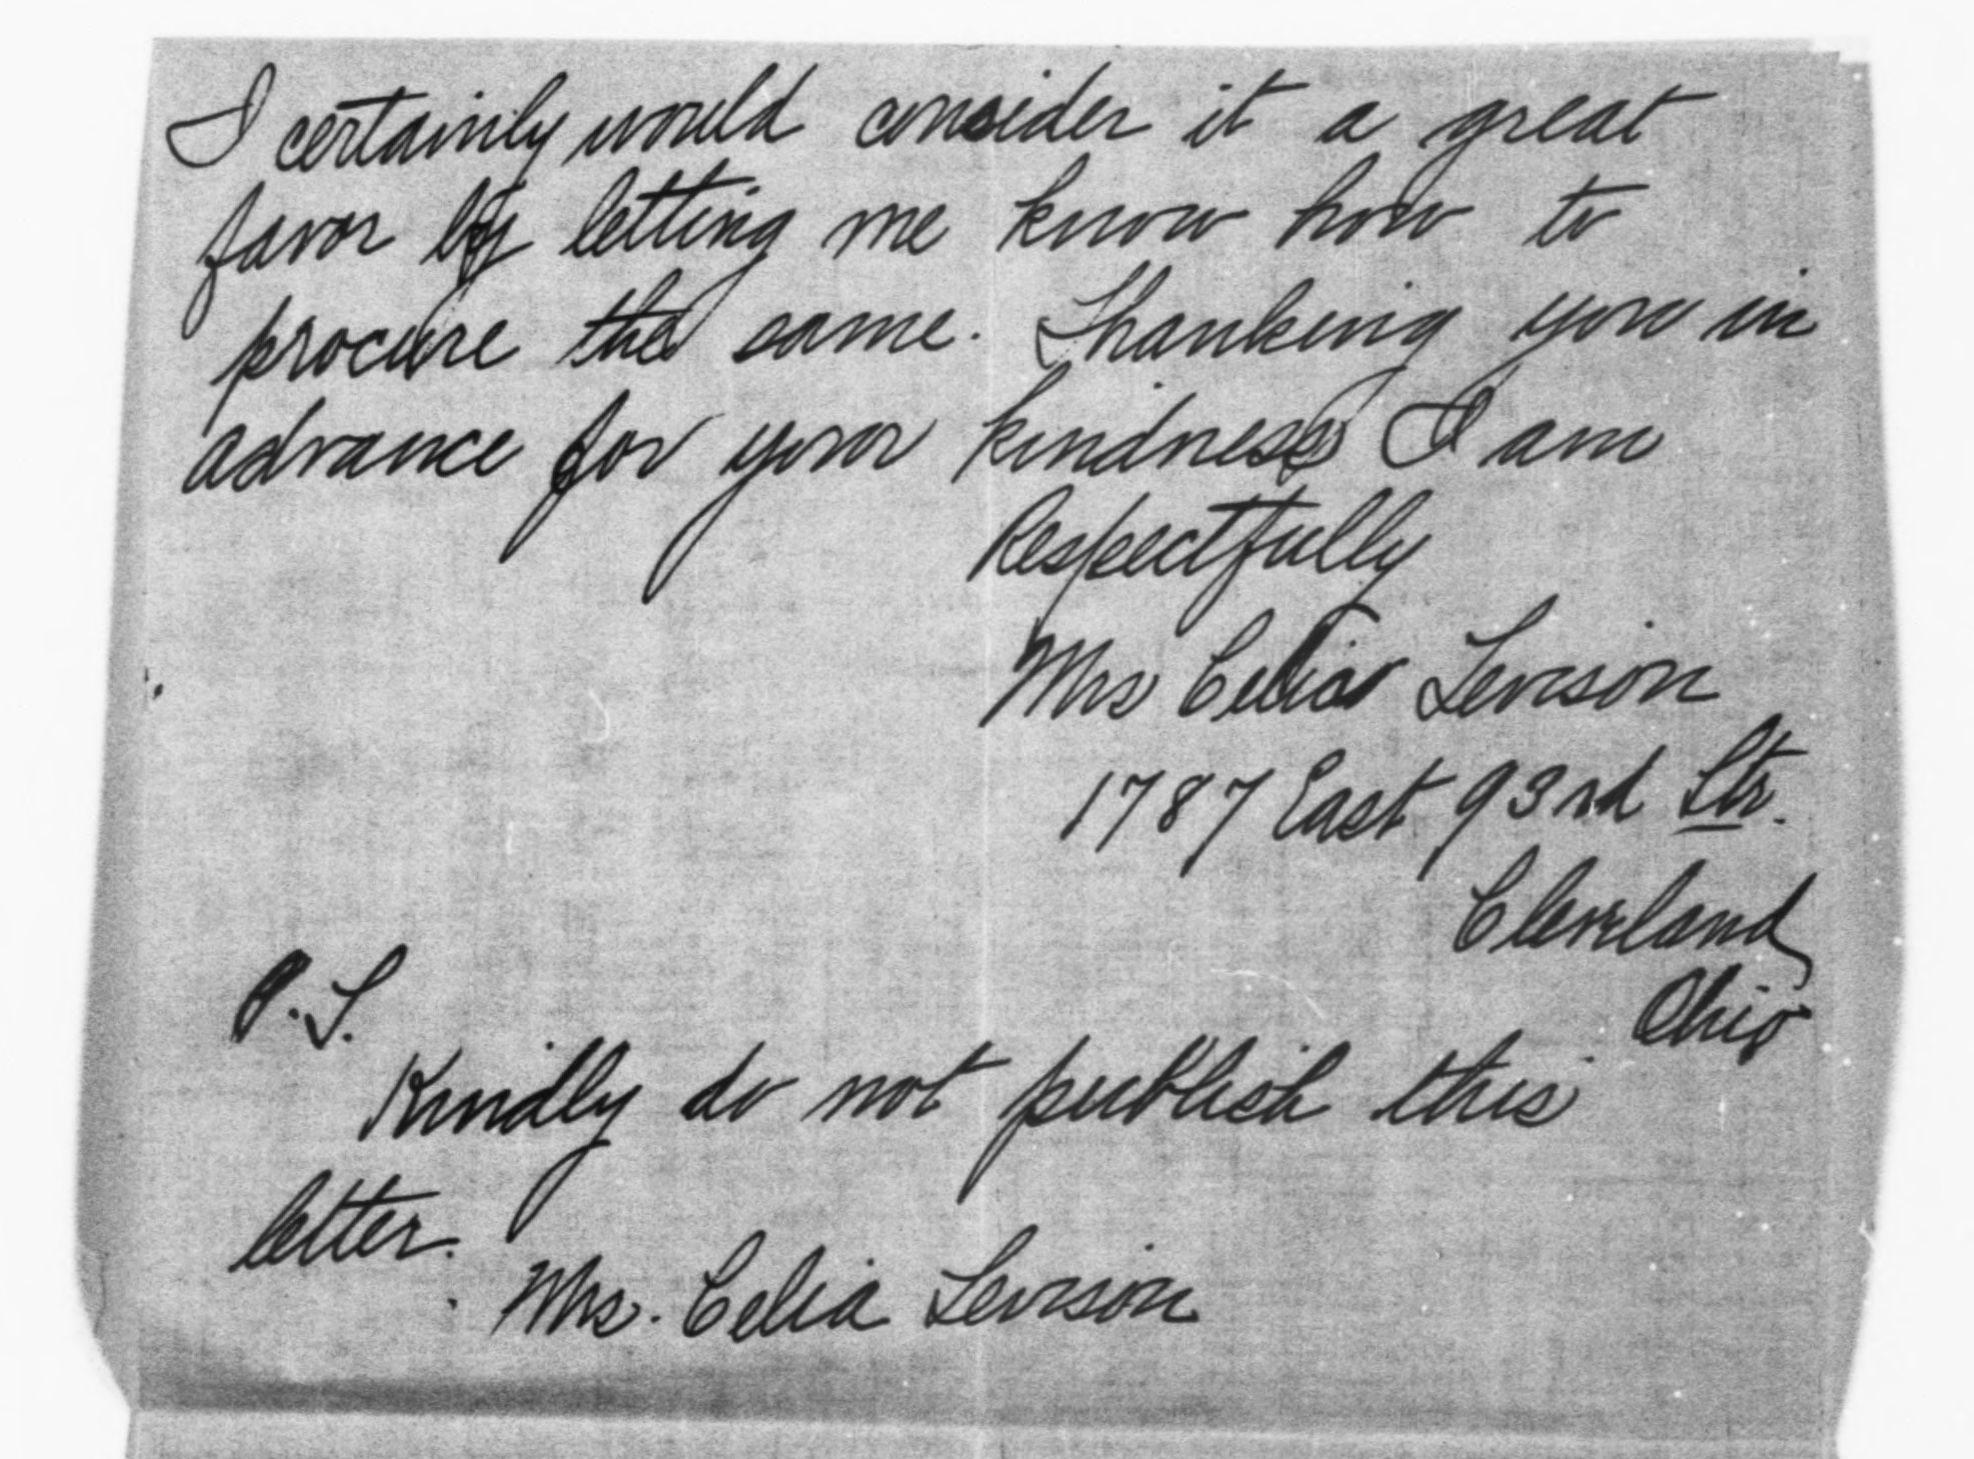 I certainly would consider it a great
favor by letting me know how to
procure the same. Thanking you in
advance for your kindness I am
Respectfully
Mrs Celia Levison
1787 East 93rd Str.
Cleveland
Ohio
P.S.
Kindly do not publish this
letter.
Mrs. Celia Levison